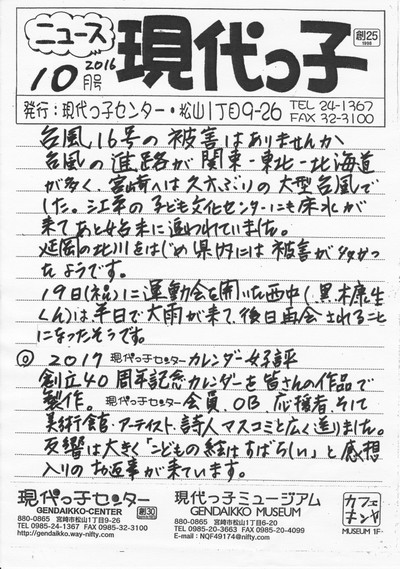 ニュース
現代っ子
創25
1998
2016
10月号
発行:現代っ子センター・松山1丁目9-26
TEL 24-1367
FAX 32-3100
台風16号の被害はありませんか
台風の進路が関東-東北-北海道
が多く、宮崎へは久方ぶりの大型台風で
した。江平の子ども文化センターにも床水が
来てあと始末に追われていました。
延岡の北川をはじめ県内には被害が多かっ
たようです。
19日(祝)に運動会を開いた西中(黒木康生
くん)は、半日で大雨が来て、後日再会されること
になったそうです。
◎ 2017 現代っ子センター カレンダー好評
創立40周年記念カレンダーを皆さんの作品で
製作。現代っ子センター会員、OB、応援者、そして
美術館・アーティスト、詩人、マスコミと広く送りました。
反響は大きく「こどもの絵はすばらしい」と感想
入りのお返事が来ています。
現代っ子センター
GENDAIKKO-CENTER
創30
880-0865 宮崎市松山1丁目9-26
TEL 0985-24-1367 FAX 0985-32-3100
http://gendaikko.way-nifty.com/
現代っ子ミュージアム
GENDAIKKO MUSEUM
880-0865 宮崎市松山1丁目6-20
TEL 0985-20-3663 FAX 0985-20-4099
E-mail : NQF49174@nifty.com
カフェ
MUSEUM 1F